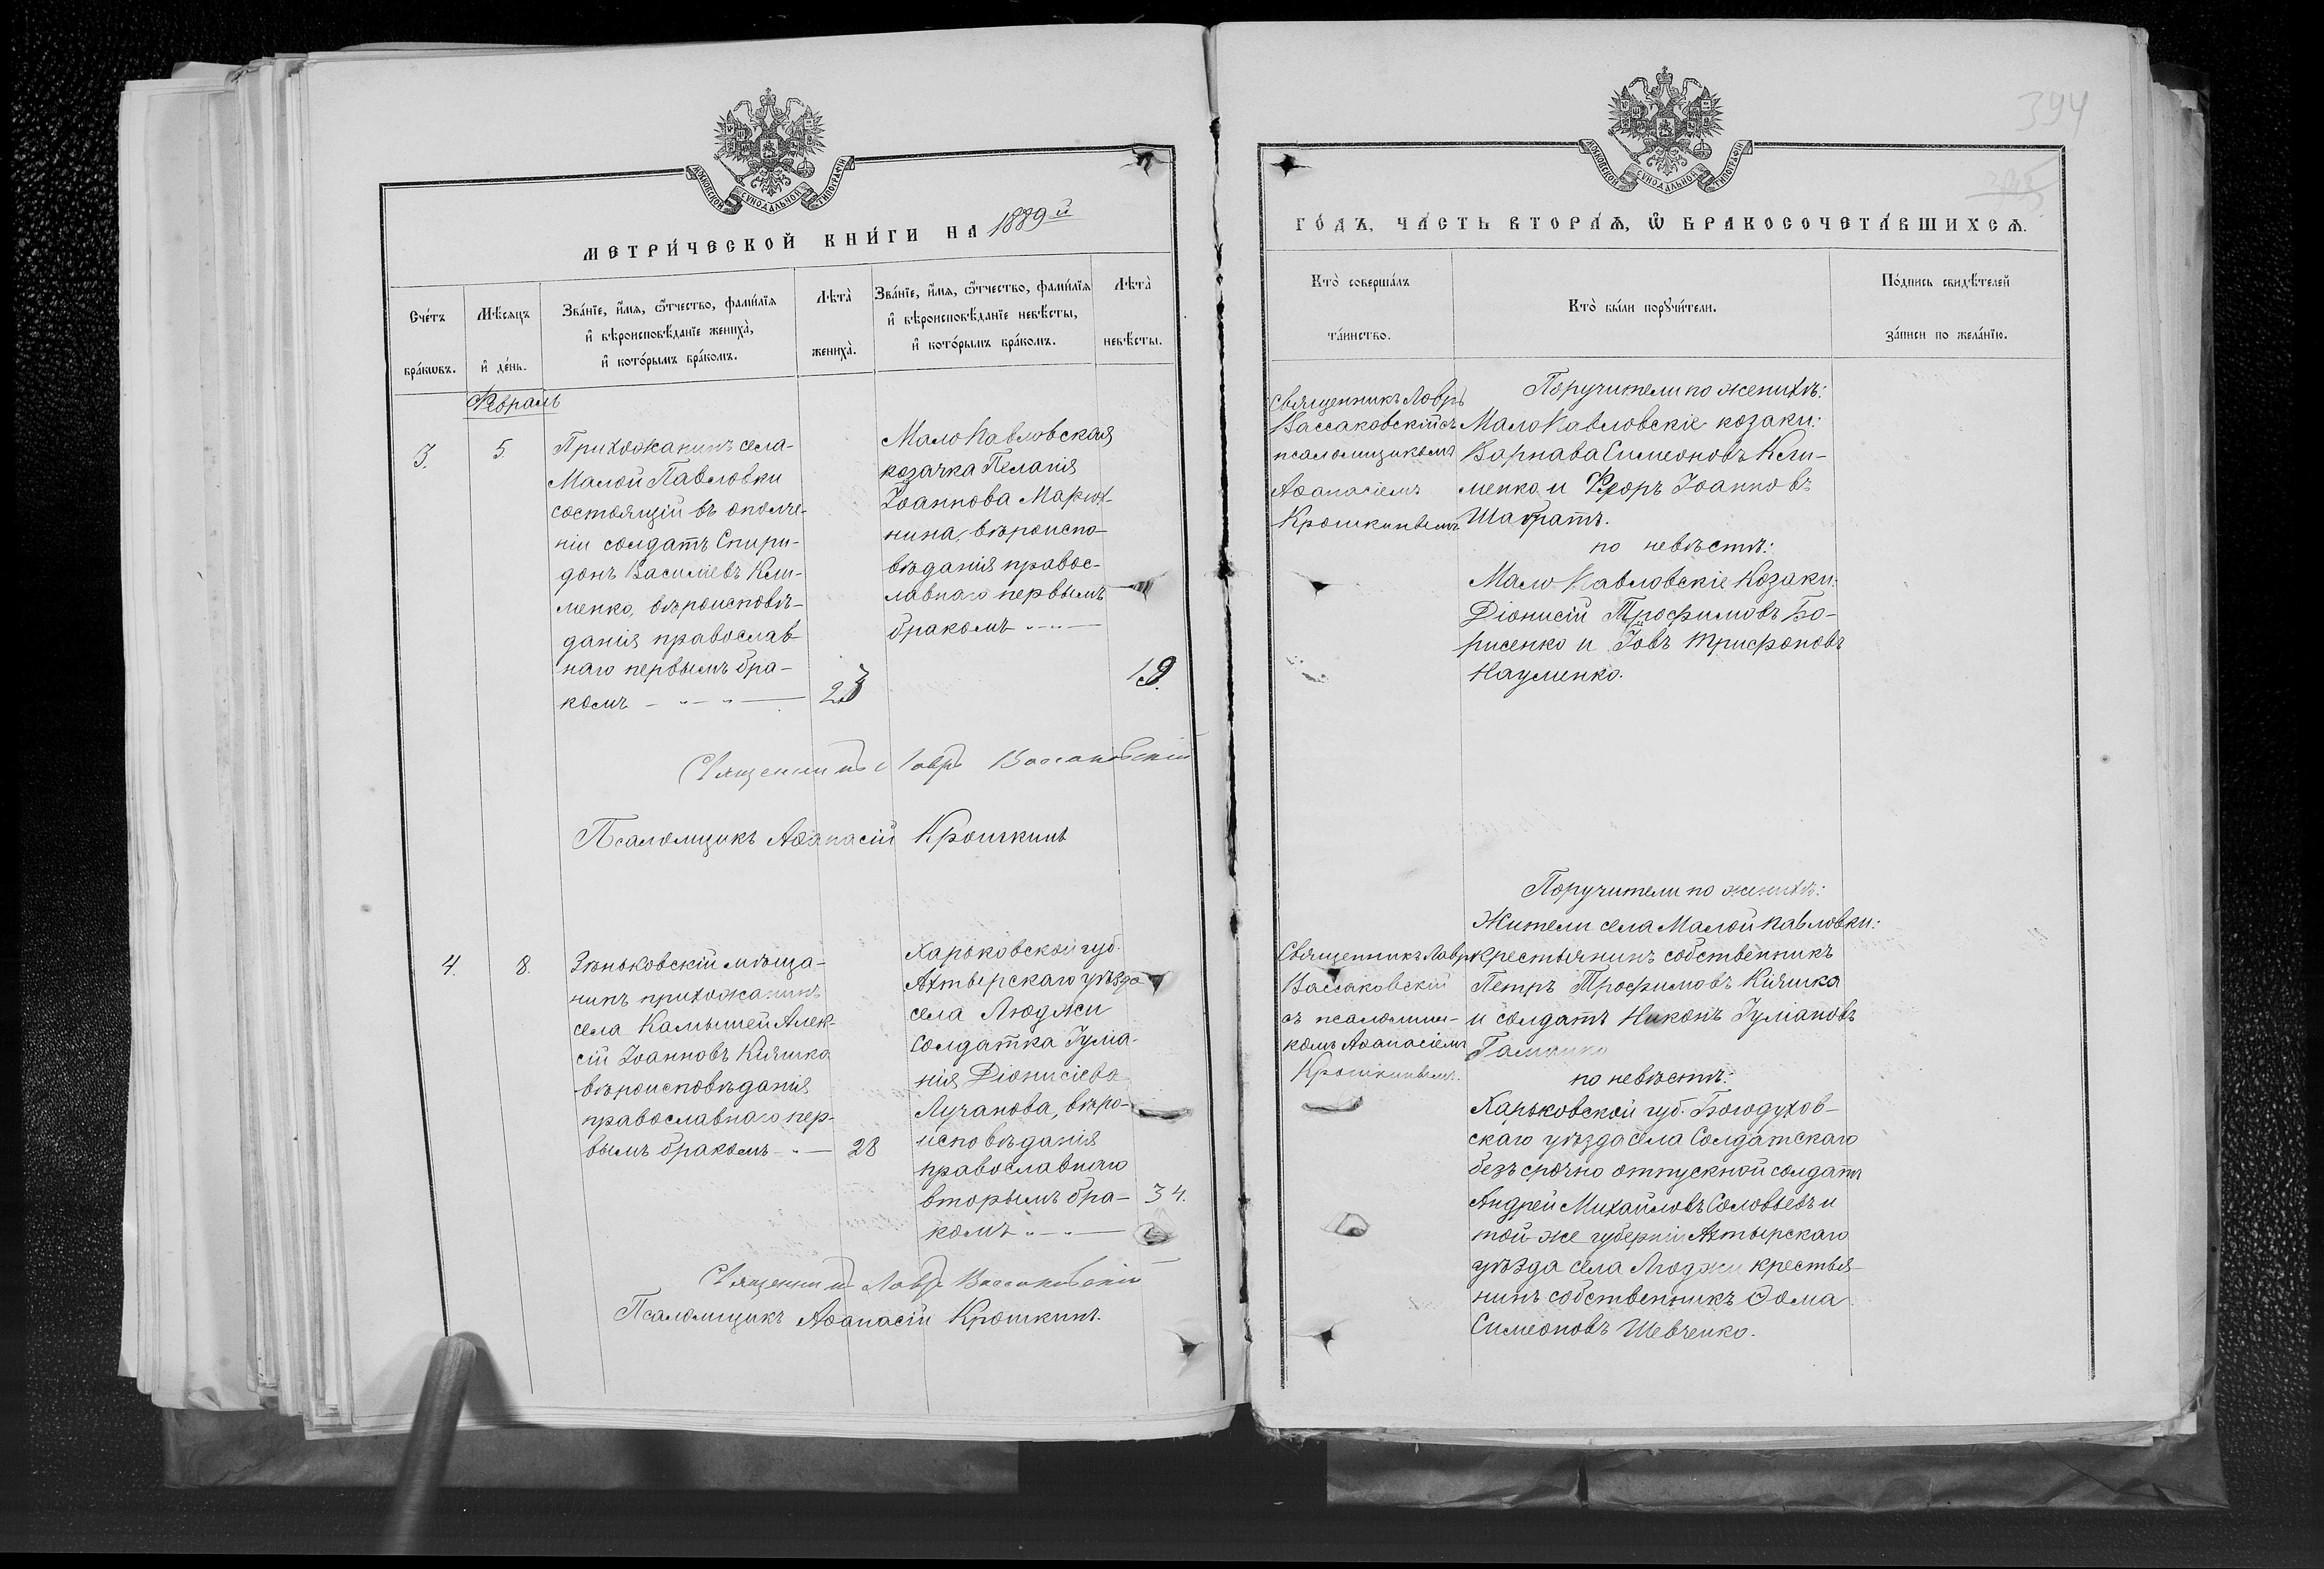 МОСКОВСКОЙ СѴНОДАЛЬНОЙ ТИПОГРАФІИ
МЕТРИ́ЧЕСКОЙ КНИ́ГИ НА 1889й
Сче́тъ бра́кѡвъ.
Мѣ́сяцъ и҆ де́нь.
Зва́нїе, и҆́мѧ, ѻ҆́тчество, фами́лїѧ
и҆ вѣроисповѣ́данїе жениха̀,
и҆ кото́рымъ бра́комъ.
Лѣта̀ жениха̀.
Зва́нїе, и҆́мѧ, ѻ҆́тчество, фами́лїѧ
и҆ вѣроисповѣ́данїе невѣ́сты,
и҆ кото́рымъ бра́комъ.
Лѣта̀ невѣ́сты.
Февраль
3.
5.
Прихожанинъ села
Малой Павловки
состоящій въ ополче-
ніи солдатъ Спири-
донъ Василіевъ Кли-
менко, вѣроисповѣ-
данія православ-
наго первымъ бра-
комъ
23
МалоПавловская
козачка Пелагія
Іоаннова Марют-
нина, вѣроиспо-
вѣданія правос-
лавнаго первымъ
бракомъ
19.
Священникъ Лавръ Вассаковскій
Псаломщикъ Аѳанасій Крошкинъ
4.
8.
Зѣньковскій мѣща-
нинъ прихожанинъ
села Камышей Алек-
сій Іоанновъ Кияшка
вѣроисповѣданія
православнаго пер-
вымъ бракомъ
28
Харьковской губ.
Ахтырскаго уѣзда
села Люджи
солдатка Іуліа-
нія Діонисіева
Лучанова, вѣро-
исповѣданія
православнаго
вторымъ бра-
комъ
34.
Священникъ Лавръ Вассаковскій
Псаломщикъ Аѳанасій Крошкинъ.
394
МОСКОВСКОЙ СѴНОДАЛЬНОЙ ТИПОГРАФІИ
ГО́ДЪ, ЧА́СТЬ ВТОРА́Ѧ, Ѡ҆ БРАКОСОЧЕТА́ВШИХСѦ.
Кто̀ соверша́лъ
та́инство.
Кто̀ бы́ли порꙋчи́тели.
По́дпись свидѣ́телей
за́писи по жела́нїю.
Священникъ Лавръ
Вассаковскій съ
псаломщикомъ
Аѳанасіемъ
Крошкинымъ
Поручители по женихѣ:
МалоПавловскіе козаки:
Варнава Симеоновъ Кли-
менко и Ѳедоръ Іоанновъ
Шабратъ.
по невѣстѣ:
Мало Павловскіе Козаки:
Діонисій Трофимовъ Бо-
рисенко и Іовъ Трифоновъ
Науменко.
Священникъ Лавръ
Вассаковскій
съ псаломщи-
комъ Аѳанасіемъ
Крошкинымъ.
Поручители по женихѣ:
Жители села Малой Павловки:
крестьянинъ собственникъ
Петръ Трофимовъ Кияшка
и солдатъ Никонъ Іуліановъ
по невѣстѣ:
Харьковской губ. Богодухов-
скаго уѣзда села Солдатскаго
безъ срочно отпускной солдатъ
Андрей Михайловъ Соловьевъ и
той-же губерніи Ахтырскаго
уѣзда села Люджи крестья-
нинъ собственникъ Ѳома
Симеоновъ Шевченко.